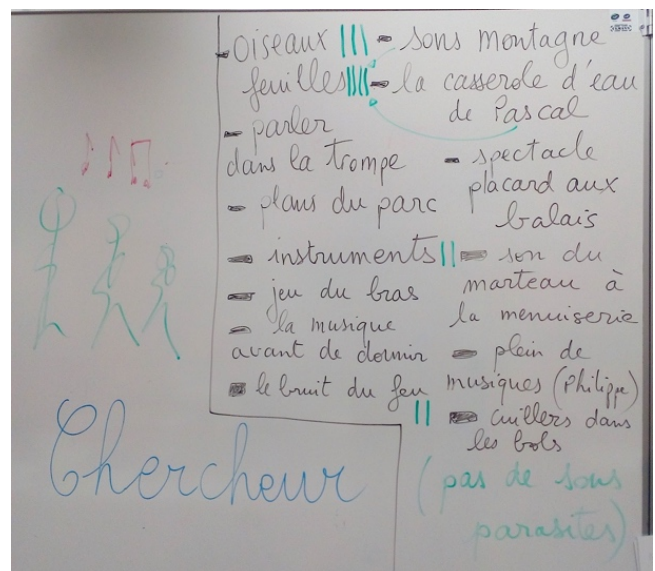 - oiseaux
feuilles
- parler
dans la trompe
- plans du parc
- instruments
- jeu du bras
- la musique
avant de dormir
- le bruit du feu
- sons montagne
- la casserole d'eau
de Pascal
- spectacle
placard aux
balais
- son du
marteau à
la menuiserie
- plein de
musiques (Philippe)
- cuillers dans
les bols
(pas de sons
parasites)
Chercheur